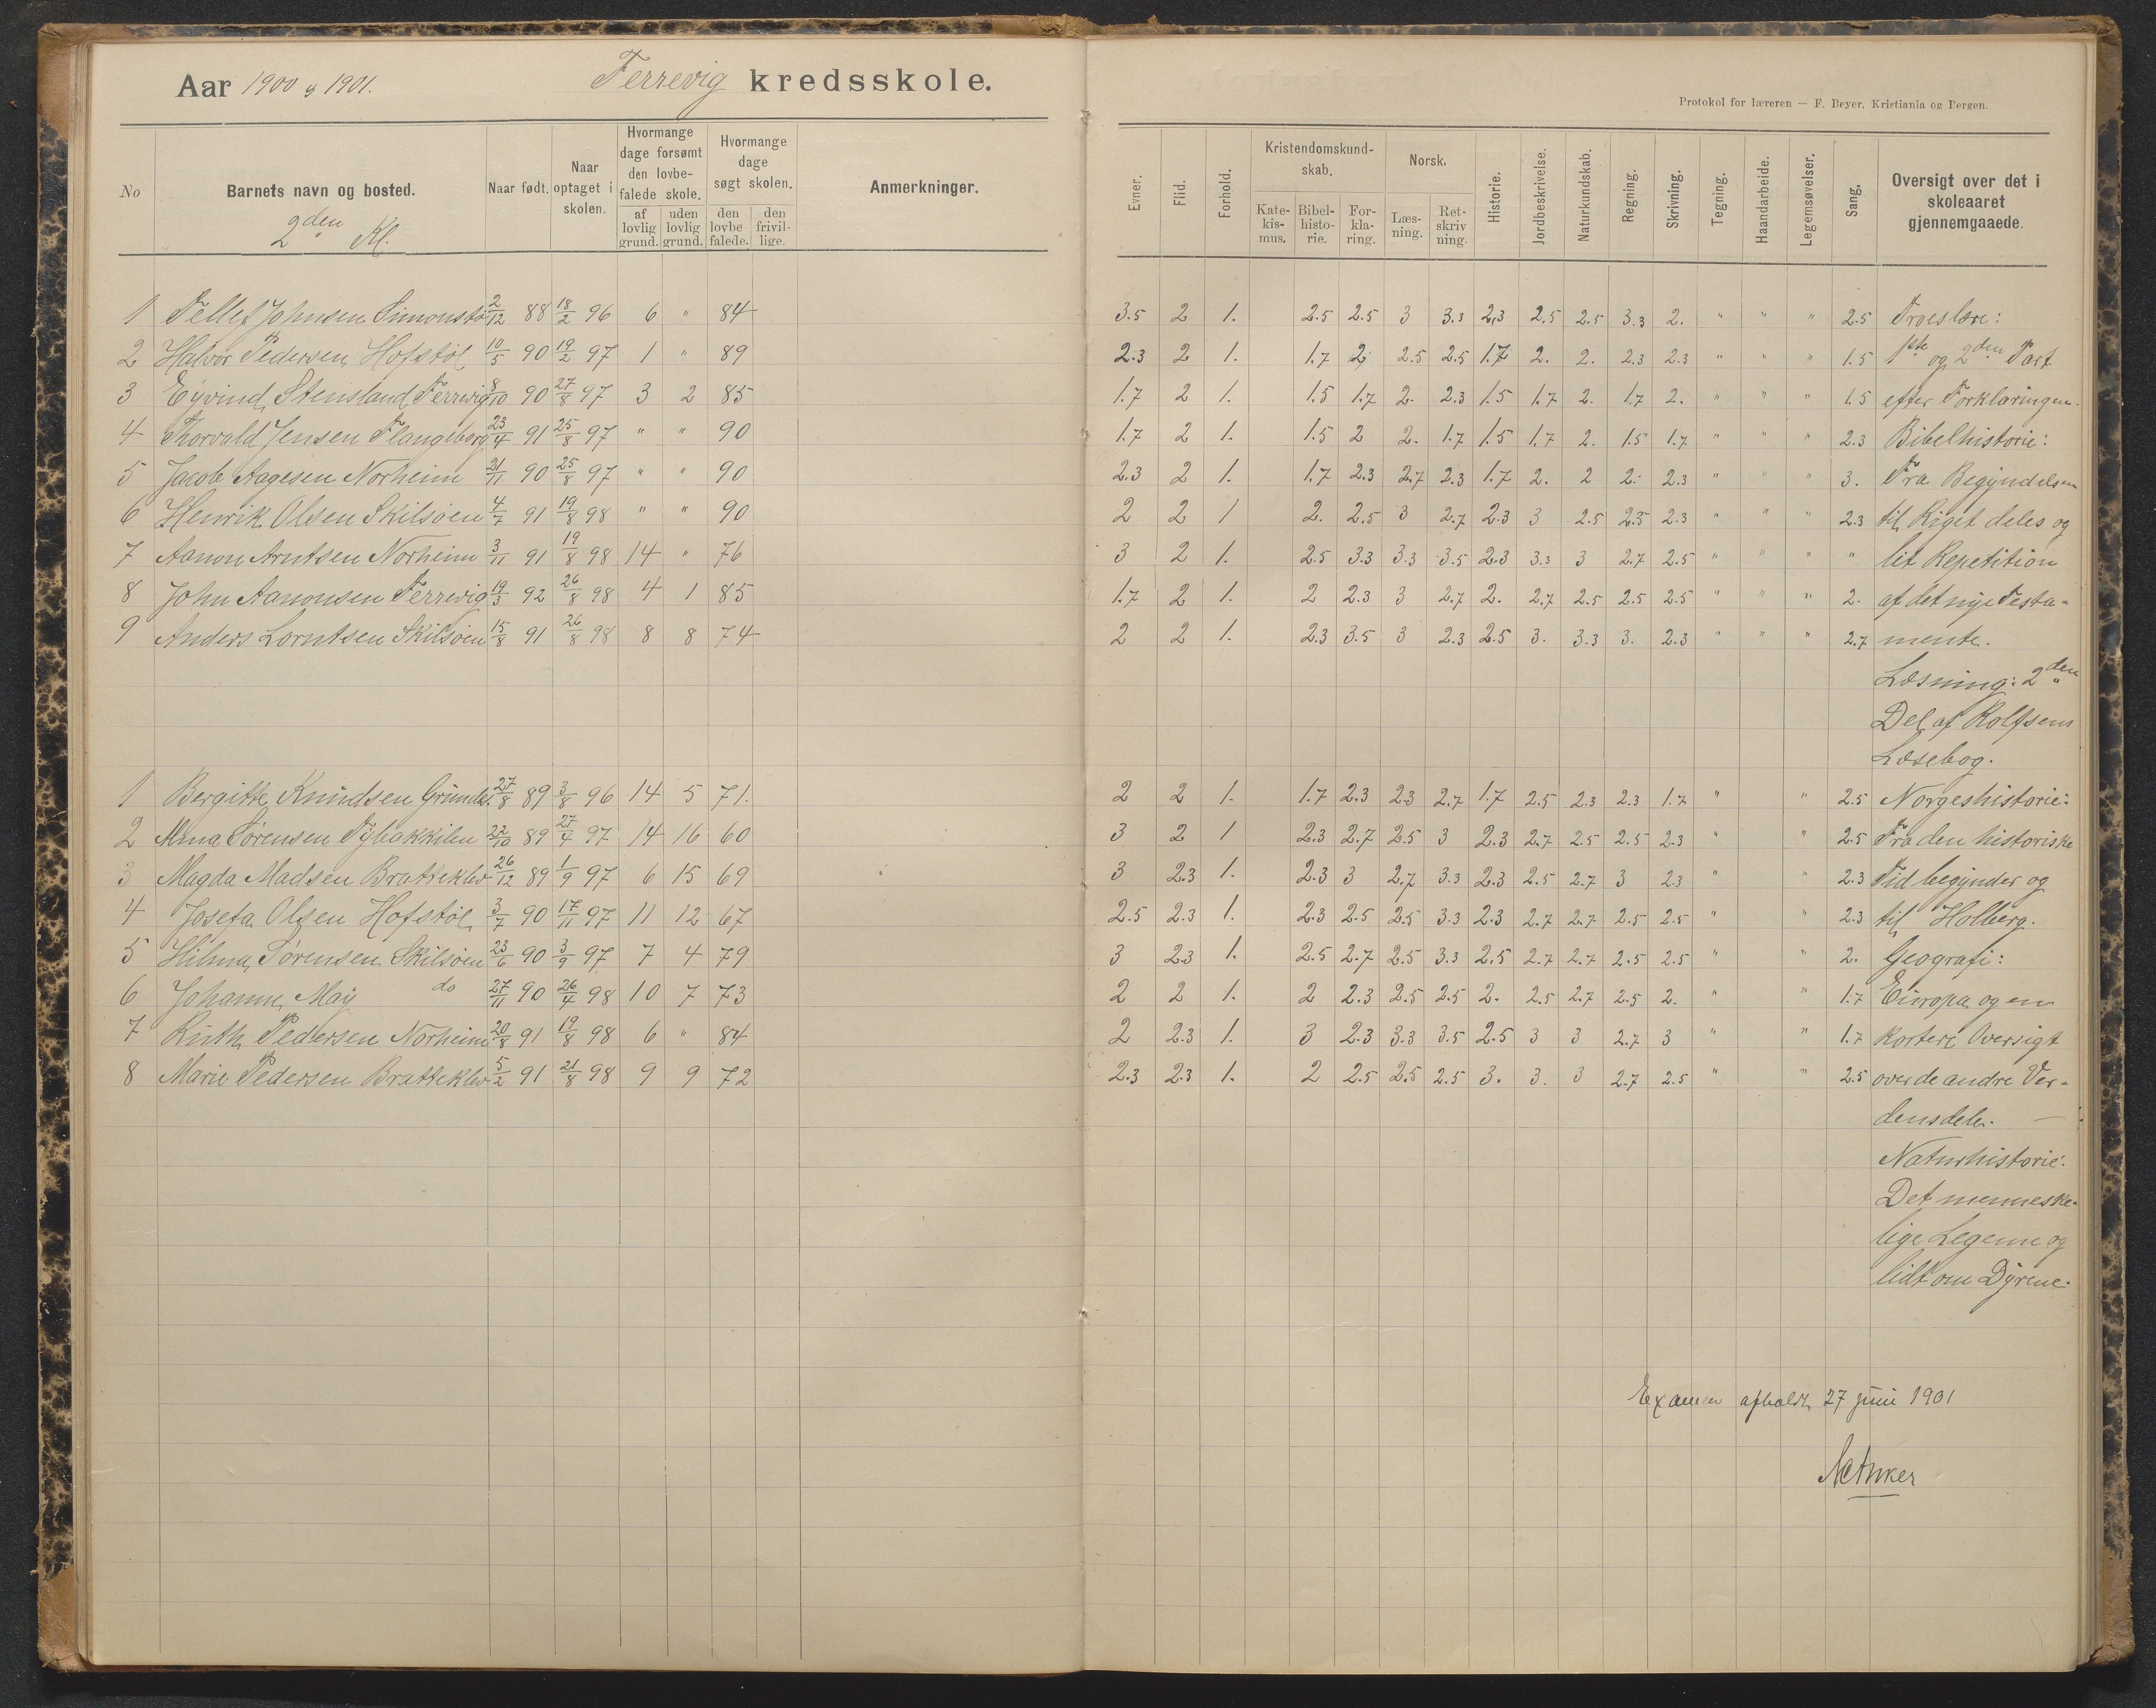 Aar 1900 og 1901. Ferrevig kredsskole.
Protokol for læreren — F. Beyer, Kristiania og Bergen.
No Barnets navn og bosted. Naar født. Naar optaget i skolen. Hvormange dage forsømt den lovbefalede skole. af lovlig grund. uden lovlig grund. Hvormange dage søgt skolen. den lovbefalede. den frivillige. Anmerkninger.
Evner. Flid. Forhold. Kristendomskundskab. Katekismus. Bibelhistorie. Forklaring. Norsk. Læsning. Retskrivning. Historie. Jordbeskrivelse. Naturkundskab. Regning. Skrivning. Tegning. Haandarbeide. Legemsøvelser. Sang. Oversigt over det i skoleaaret gjennemgaaede.
2den Kl.
1 Tellef Johnsen Simonstø 2/12 88 18/2 96 6 " 84 3.5 2 1. 2.5 2.5 3 3.3 2.3 2.5 2.5 3.3 2. " " " 2.5 Troeslære:
2 Halvor Pedersen Hofstøl 10/5 90 19/2 97 1 " 89 2.3 2 1. 1.7 2 2.5 2.5 1.7 2. 2. 2.3 2.3 " " " 1.5 1ste og 2den Part
3 Eyvind Stensland Ferrevig 8/10 90 27/8 97 3 2 85 1.7 2 1. 1.5 1.7 2. 2.3 1.5 1.7 2. 1.7 2. " " " 1.5 efter Forklaringen.
4 Thorvald Jensen Flangeborg 23/4 91 25/8 97 " " 90 1.7 2 1. 1.5 2 2. 1.7 1.5 1.7 2. 1.5 1.7 " " " 2.3 Bibelhistorie:
5 Jacob Aagesen Norheim 21/11 90 25/8 97 " " 90 2.3 2 1. 1.7 2.3 2.7 2.3 1.7 2. 2 2. 2.3 " " " 3. Fra Begyndelsen
6 Henrik Olsen Skilsøen 4/7 91 19/8 98 " " 90 2 2 1 2. 2.5 3 2.7 2.3 3 2.5 2.5 2.3 " " " 2.3 til Riget deles og
7 Aanon Arntsen Norheim 3/11 91 19/8 98 14 " 76 3 2 1. 2.5 3.3 3.3 3.5 2.3 3.3 3 2.7 2.5 " " " " lit Repetition
8 John Aanonsen Ferrevig 19/3 92 26/8 98 4 1 85 1.7 2 1. 2 2.3 3 2.7 2. 2.7 2.5 2.5 2.5 " " " 2. af det nye Testa-
9 Anders Lorntsen Skilsøen 15/8 91 26/8 98 8 8 74 2 2 1. 2.3 3.5 3 2.3 2.5 3. 3.3 3. 2.3 " " " 2.7 mente.
Læsning: 2den
Del af Rolfsens
Læsebog.
1 Bergitte Knudsen Grimdes. 27/8 89 3/8 96 14 5 71. 2 2 1. 1.7 2.3 2.3 2.7 1.7 2.5 2.3 2.3 1.7 " " 2.5 Norgeshistorie:
2 Alma Sørensen Tybakkilen 22/10 89 27/4 97 14 16 60 3 2 1 2.3 2.7 2.5 3 2.3 2.7 2.5 2.5 2.3 " " 2.5 Fra den historiske
3 Magda Madsen Bratteklev 26/12 89 1/9 97 6 15 69 3 2.3 1. 2.3 3 2.7 3.3 2.3 2.5 2.7 3 2.3 " " 2.3 Tid begynder og
4 Josefa Olsen Hofstøl 3/7 90 17/11 97 11 12 67 2.5 2.3 1. 2.3 2.5 2.5 3.3 2.3 2.7 2.7 2.5 2.5 " " 2.3 til Holberg.
5 Hilma Sørensen Skilsøen 23/6 90 3/9 97 7 4 79 3 2.3 1. 2.5 2.7 2.5 3.3 2.5 2.7 2.7 2.5 2.5 " " 2. Geografi:
6 Johanne May do 27/11 90 26/4 98 10 7 73 2 2 1. 2 2.3 2.5 2.5 2. 2.5 2.7 2.5 2. " " 1.7 Europa og en
7 Ruth Pedersen Norheim 20/8 91 19/8 98 6 " 84 2 2.3 1. 3 2.3 3.3 3.5 2.5 3 3 2.7 3 " " 1.7 kortere Oversigt
8 Marie Pedersen Bratteklev 5/2 91 21/8 98 9 9 72 2.3 2.3 1. 2 2.5 2.5 2.5 3. 3. 3 2.7 2.5 " " 2.5 over de andre Ver-
densdele. —
Naturhistorie:
Det menneske-
lige Legeme og
lidt om Dyrene.
Examen afholdt 27 juni 1901